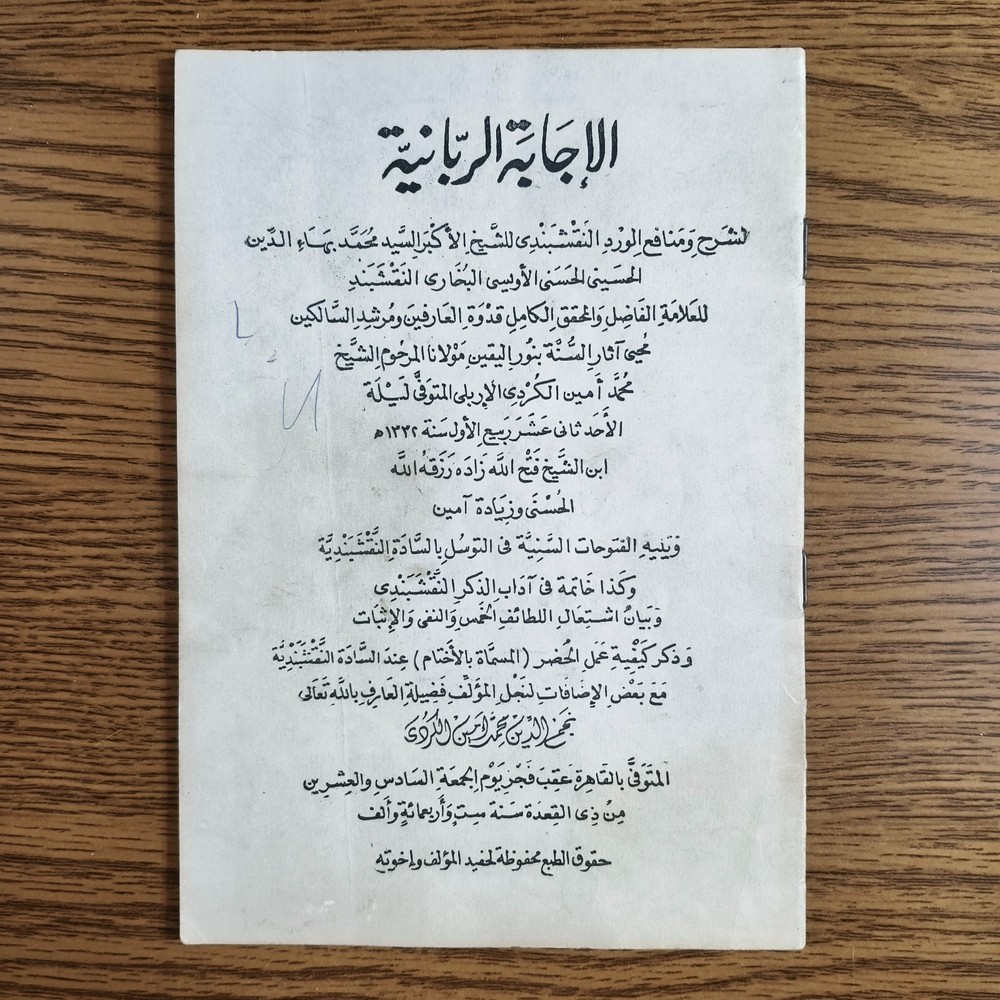 الإجَابَة الربّانيّة
لشَرح وَمَنافع الوِرْد النَقْشبَنْدى للشَّيخ الأكْبَر السَّيد مُحَمَّد بهَاءِ الدِّين
الحسَينى الحَسَنى الأويسى البُخَارى النَقْشَبَندِ
للعَلامَة الفَاضِل وَالمحَقق الكامِل قدْوَة العَارفين ومُرشدِ السَّالكين
مُحيى آثار السُّنَّة بنُور اليَقين مَوْلانا المرحُوم الشَّيخ
مُحمَّد أَمين الكُرْدى الإربلى المتوَفَّى لَيْلَة
الأَحَد ثانى عَشَرَ رَبيع الأول سَنَة ١٣٣٢ﻫ
ابن الشَّيخ فَتْح اللَّه زَاده رَزَقَهُ اللَّه
الحُسْنَى وزيَادة آمين
وَيَليهِ الفتوحات السَّنِيَّة فى التوسُل بالسَّادَة النَّقْشَبَنديَّة
وَكَذا خَاتمة فى آدَاب الذِكر النَّقْشَبَندى
وَبَيَانُ اشتعَال اللطائف الخَمس وَالنفى والإثبَات
وَذكر كَيْفيَة عَمَل الحُضر (المسمَّاة بالأختام) عِندَ السَّادَة النَّقْشَبَنْديَّة
مَعَ بَعْض الإضَافات لنَجْل المؤَلِّف فَضِيلَة العَارف باللَّه تَعَالى
نجم الدين محمد أمين الكردى
المتَوَفَّى بالقَاهِرَة عَقِبَ فَجْر يَوْم الجمعَة السَادس والعِشرين
مِنْ ذِى القعدَة سَنَة ستٍ وَأربعمائةٍ وَألف
حقوق الطبع محفوظة لحفيد المؤلف وإخوته